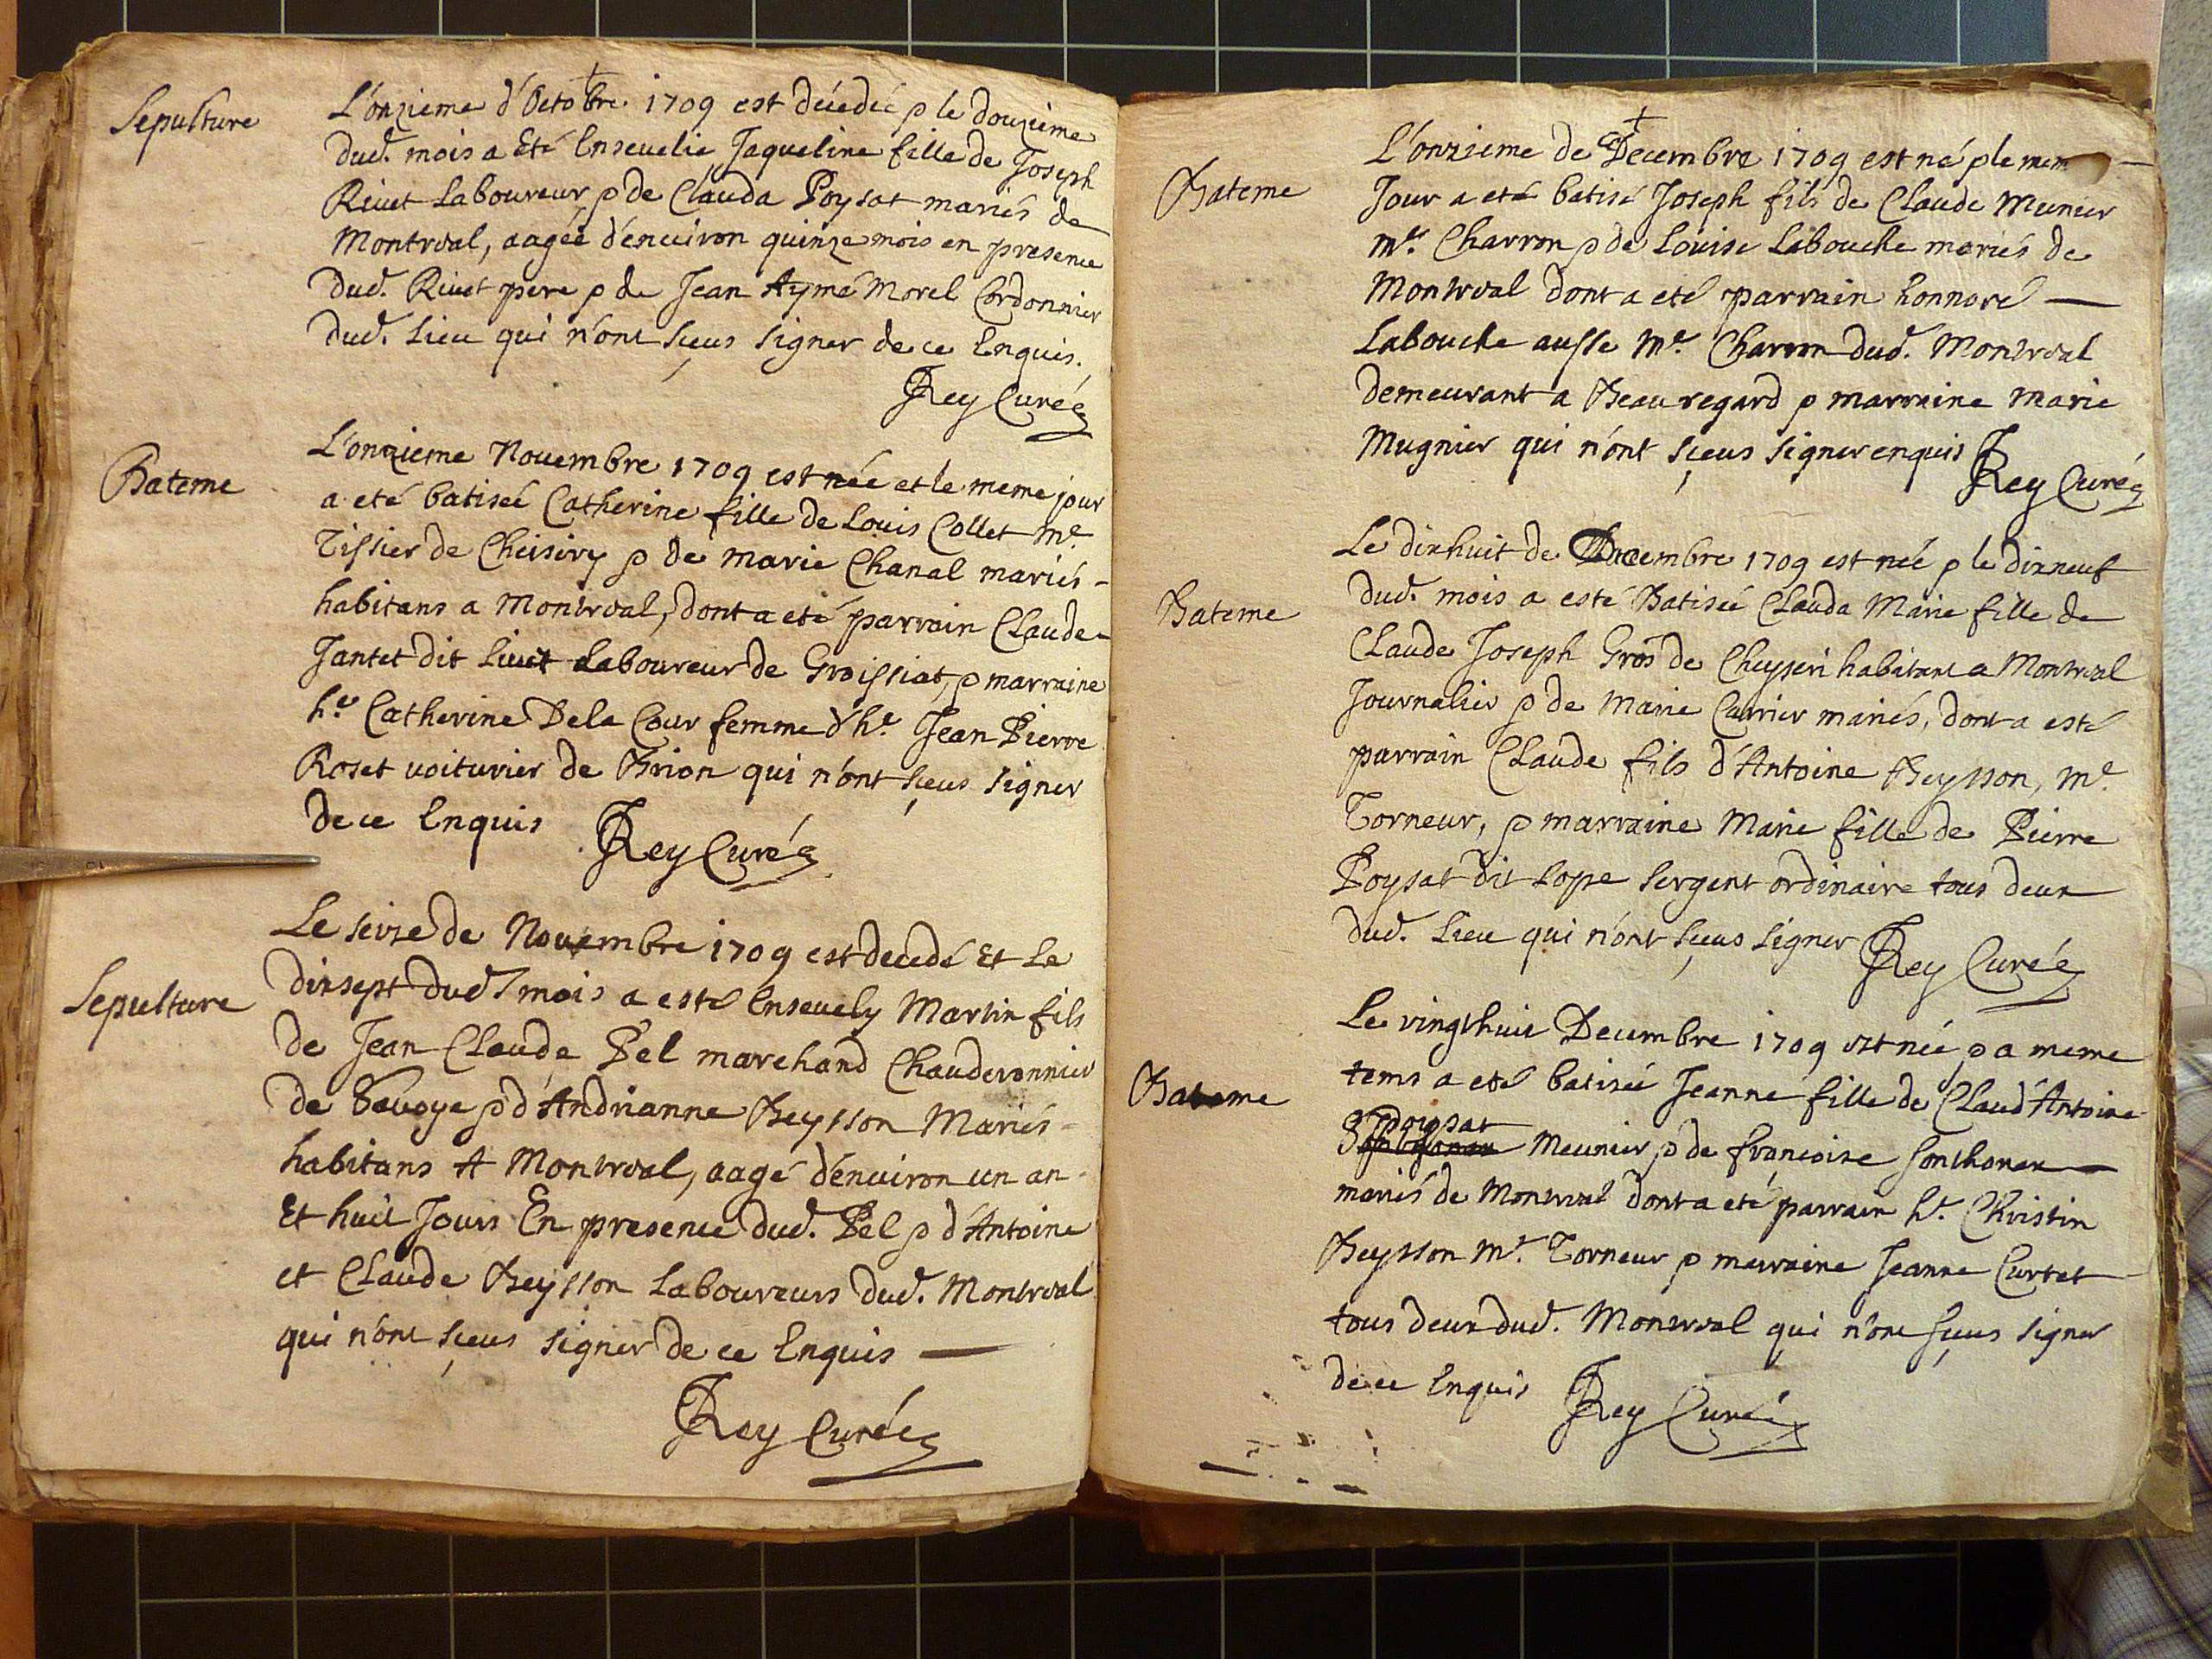 Sepulture
L'onzieme d'Octobre 1709 est décedée & le douzieme
dud. mois a Eté Ensevelie Jaqueline fille de Joseph
Rivet Laboureur & de Clauda Poysat mariés de
Montreal, aagée d'environ quinze mois en presence
dud. Rivet pere & de Jean Aymé Morel Cordonnier
dud. Lieu qui n'ont sçeus signer de ce Enquis.
Rey Curé
Bateme
L'onzieme Novembre 1709 est née et le meme jour
a eté batiseé Catherine fille de Louis Collet Me.
Tissier de Cheisiry & de Marie Chanal mariés
habitans a Montreal, dont a eté parrain Claude
Jantet dit Livet Laboureur de Groissiat, & marraine
he. Catherine Dela Cour femme d'he. Jean Pierre
Roset voiturier de Brion qui n'ont sçeus signer
de ce Enquis
Rey Curé
Sepulture
Le seize de Novembre 1709 est decedé Et Le
dixsept dud. mois a esté Ensevely Martin fils
de Jean Claude Pel marchand Chauderonnier
de Savoye & d'Andrianne Beysson Mariés
habitans A Montreal, aagé d'environ un an
Et huit Jours En presence dud. Pel & d'Antoine
et Claude Beysson Laboureurs dud. Montreal
qui n'ont sçeus signer de ce Enquis
Rey Curé
Bateme
L'onzieme de Decembre 1709 est né & le mem
Jour a eté batisé Joseph fils de Claude Munier
Me. Charron & de Louise Labouche mariés de
Montreal dont a eté parrain honnoré
Labouche ausse Me. Charron dud. Montreal
demeurant a Beauregard & marraine Marie
Mugnier qui n'ont sçeus signer enquis
Rey Curé
Bateme
Le dixhuit de Decembre 1709 est née & le dixneuf
dud. mois a esté Batisée Clauda Marie fille de
Claude Joseph Gros de Cheyseri habitant a Montreal
Journalier & de Marie Currier mariés, dont a esté
parrain Claude fils d'Antoine Beysson, Me.
Torneur, & marraine Marie fille de Pierre
Poysat dit Lope sergent ordinaire tous deux
dud. Lieu qui n'ont sçeus signer
Rey Curé
Bateme
Le vingthuit Decembre 1709 est née & a meme
tems a eté batisée Jeanne fille de Claud'Antoine
poysat
Meunier & de francoise Sonthonax
mariés de Montreal dont a eté parrain he. Christin
Beysson Me. Torneur & marraine Jeanne Curtet
tous deux dud. Montreal qui n'ont sçeus signer
de ce Enquis
Rey Curé